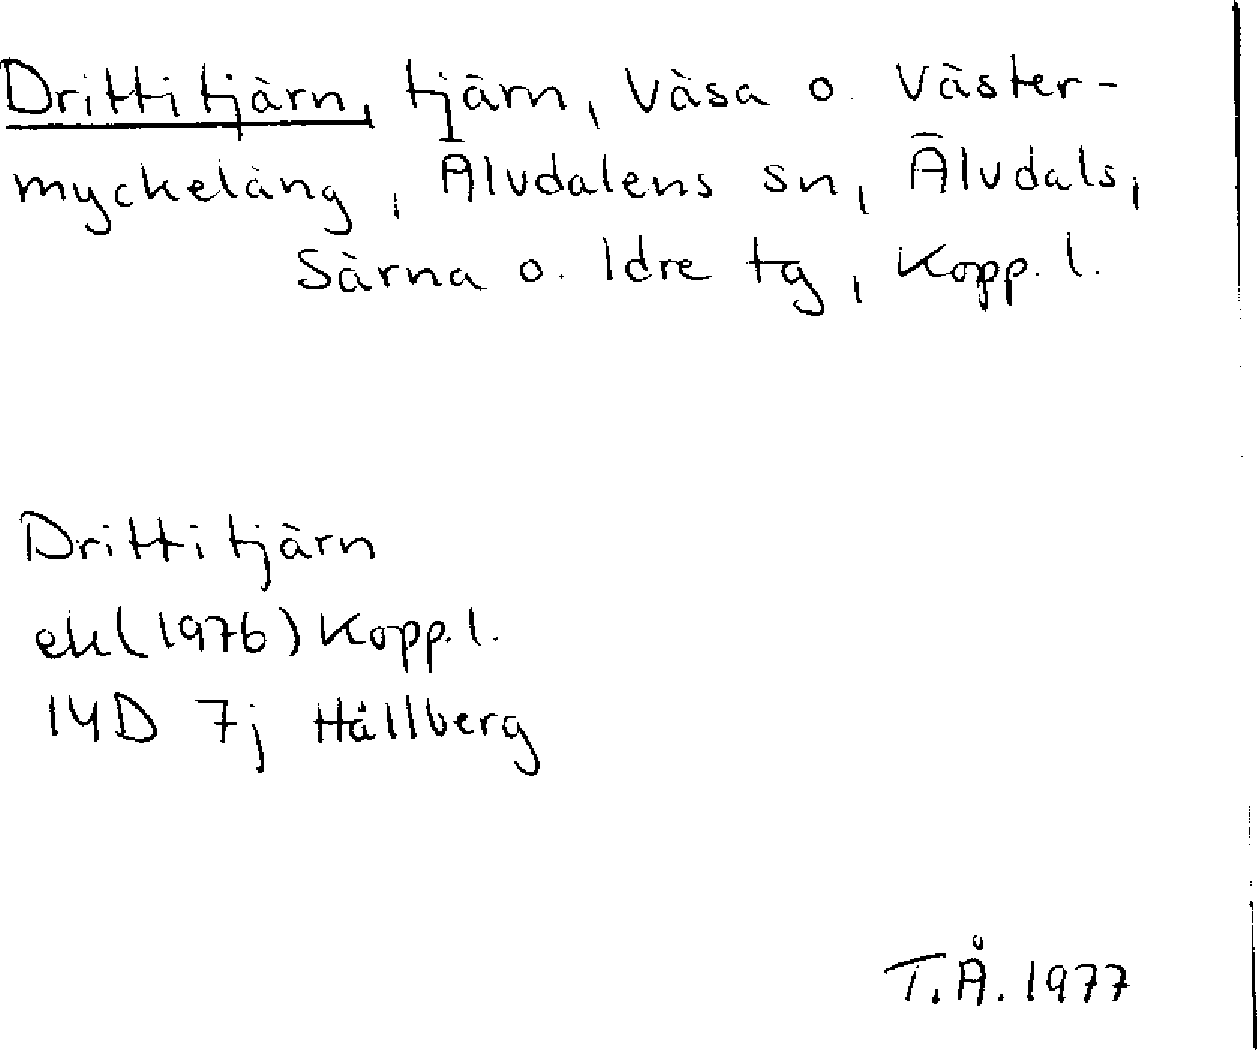 Drittitjärn, tjärn, Väsa o. Väster-
myckeläng, Älvdalens sn, Älvdals,
Särna o. Idre tg, Kopp. l.
Drittitjärn
ek (1976) Kopp. l.
14D 7j Hållberg
T.Å. 1977